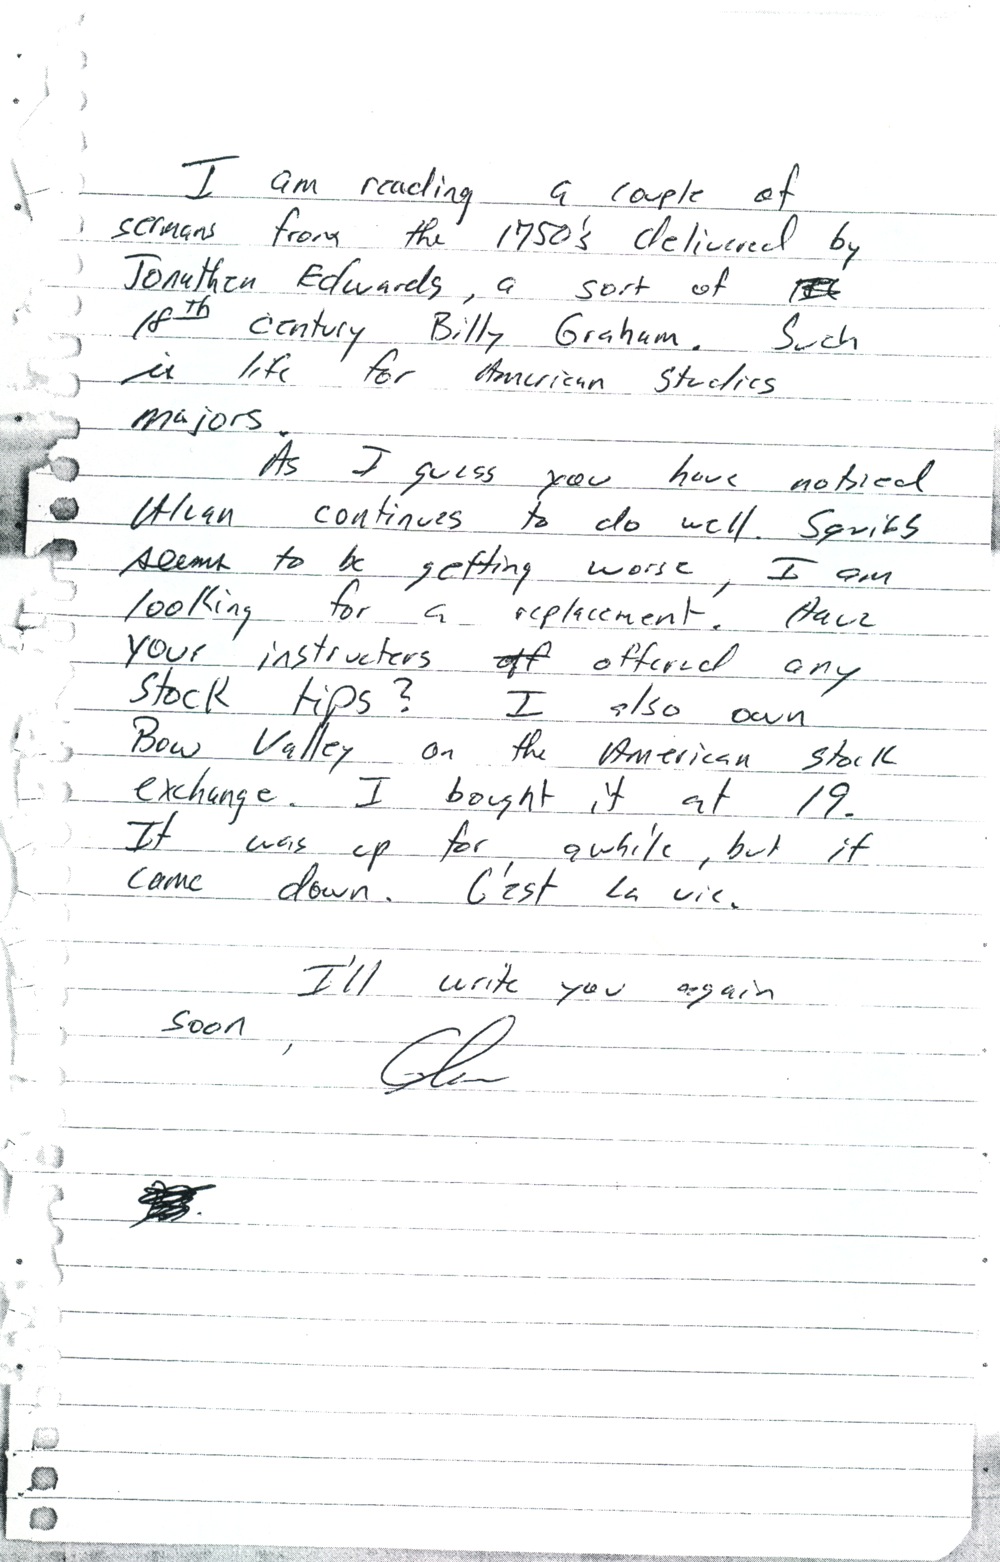 I am reading a couple of
sermans from the 1750's delivered by
Jonathen Edwards, a sort of
18th century Billy Graham. Such
is life for American Studies
majors.
As I guess you have notsied
continues to do well. Squibb
seems to be getting worse, I am
looking for a replacement. Have
your instructers offered any
stock tips? I also own
Bow Valley on the American stock
exchange. I bought it at 19.
It was up for awhile, but it
came down. C'est La vie.
I'll write you again
soon,